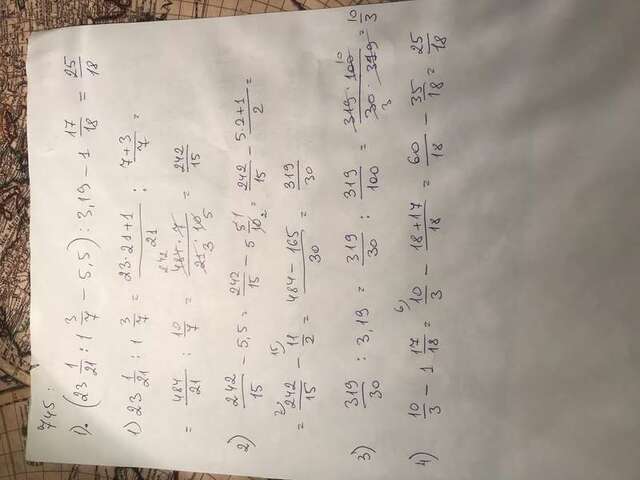 745:
1). (23 1/21 : 1 3/7 - 5,5) : 3,19 - 1 17/18 = 25/18
1) 23 1/21 : 1 3/7 = 23·21+1/21 : 7+3/7 =
= 484/21 : 10/7 = 242 484·7/21 3·10 5 = 242/15
2) 242/15 - 5,5 = 242/15 - 5 5 1/10 2 = 242/15 - 5·2+1/2 =
= 2) 242/15 - 15) 11/2 = 484-165/30 = 319/30
3) 319/30 : 3,19 = 319/30 : 319/100 = 319·100 10/30·319 3 = 10/3
4) 10/3 - 1 17/18 = 6) 10/3 - 18+17/18 = 60/18 - 35/18 = 25/18